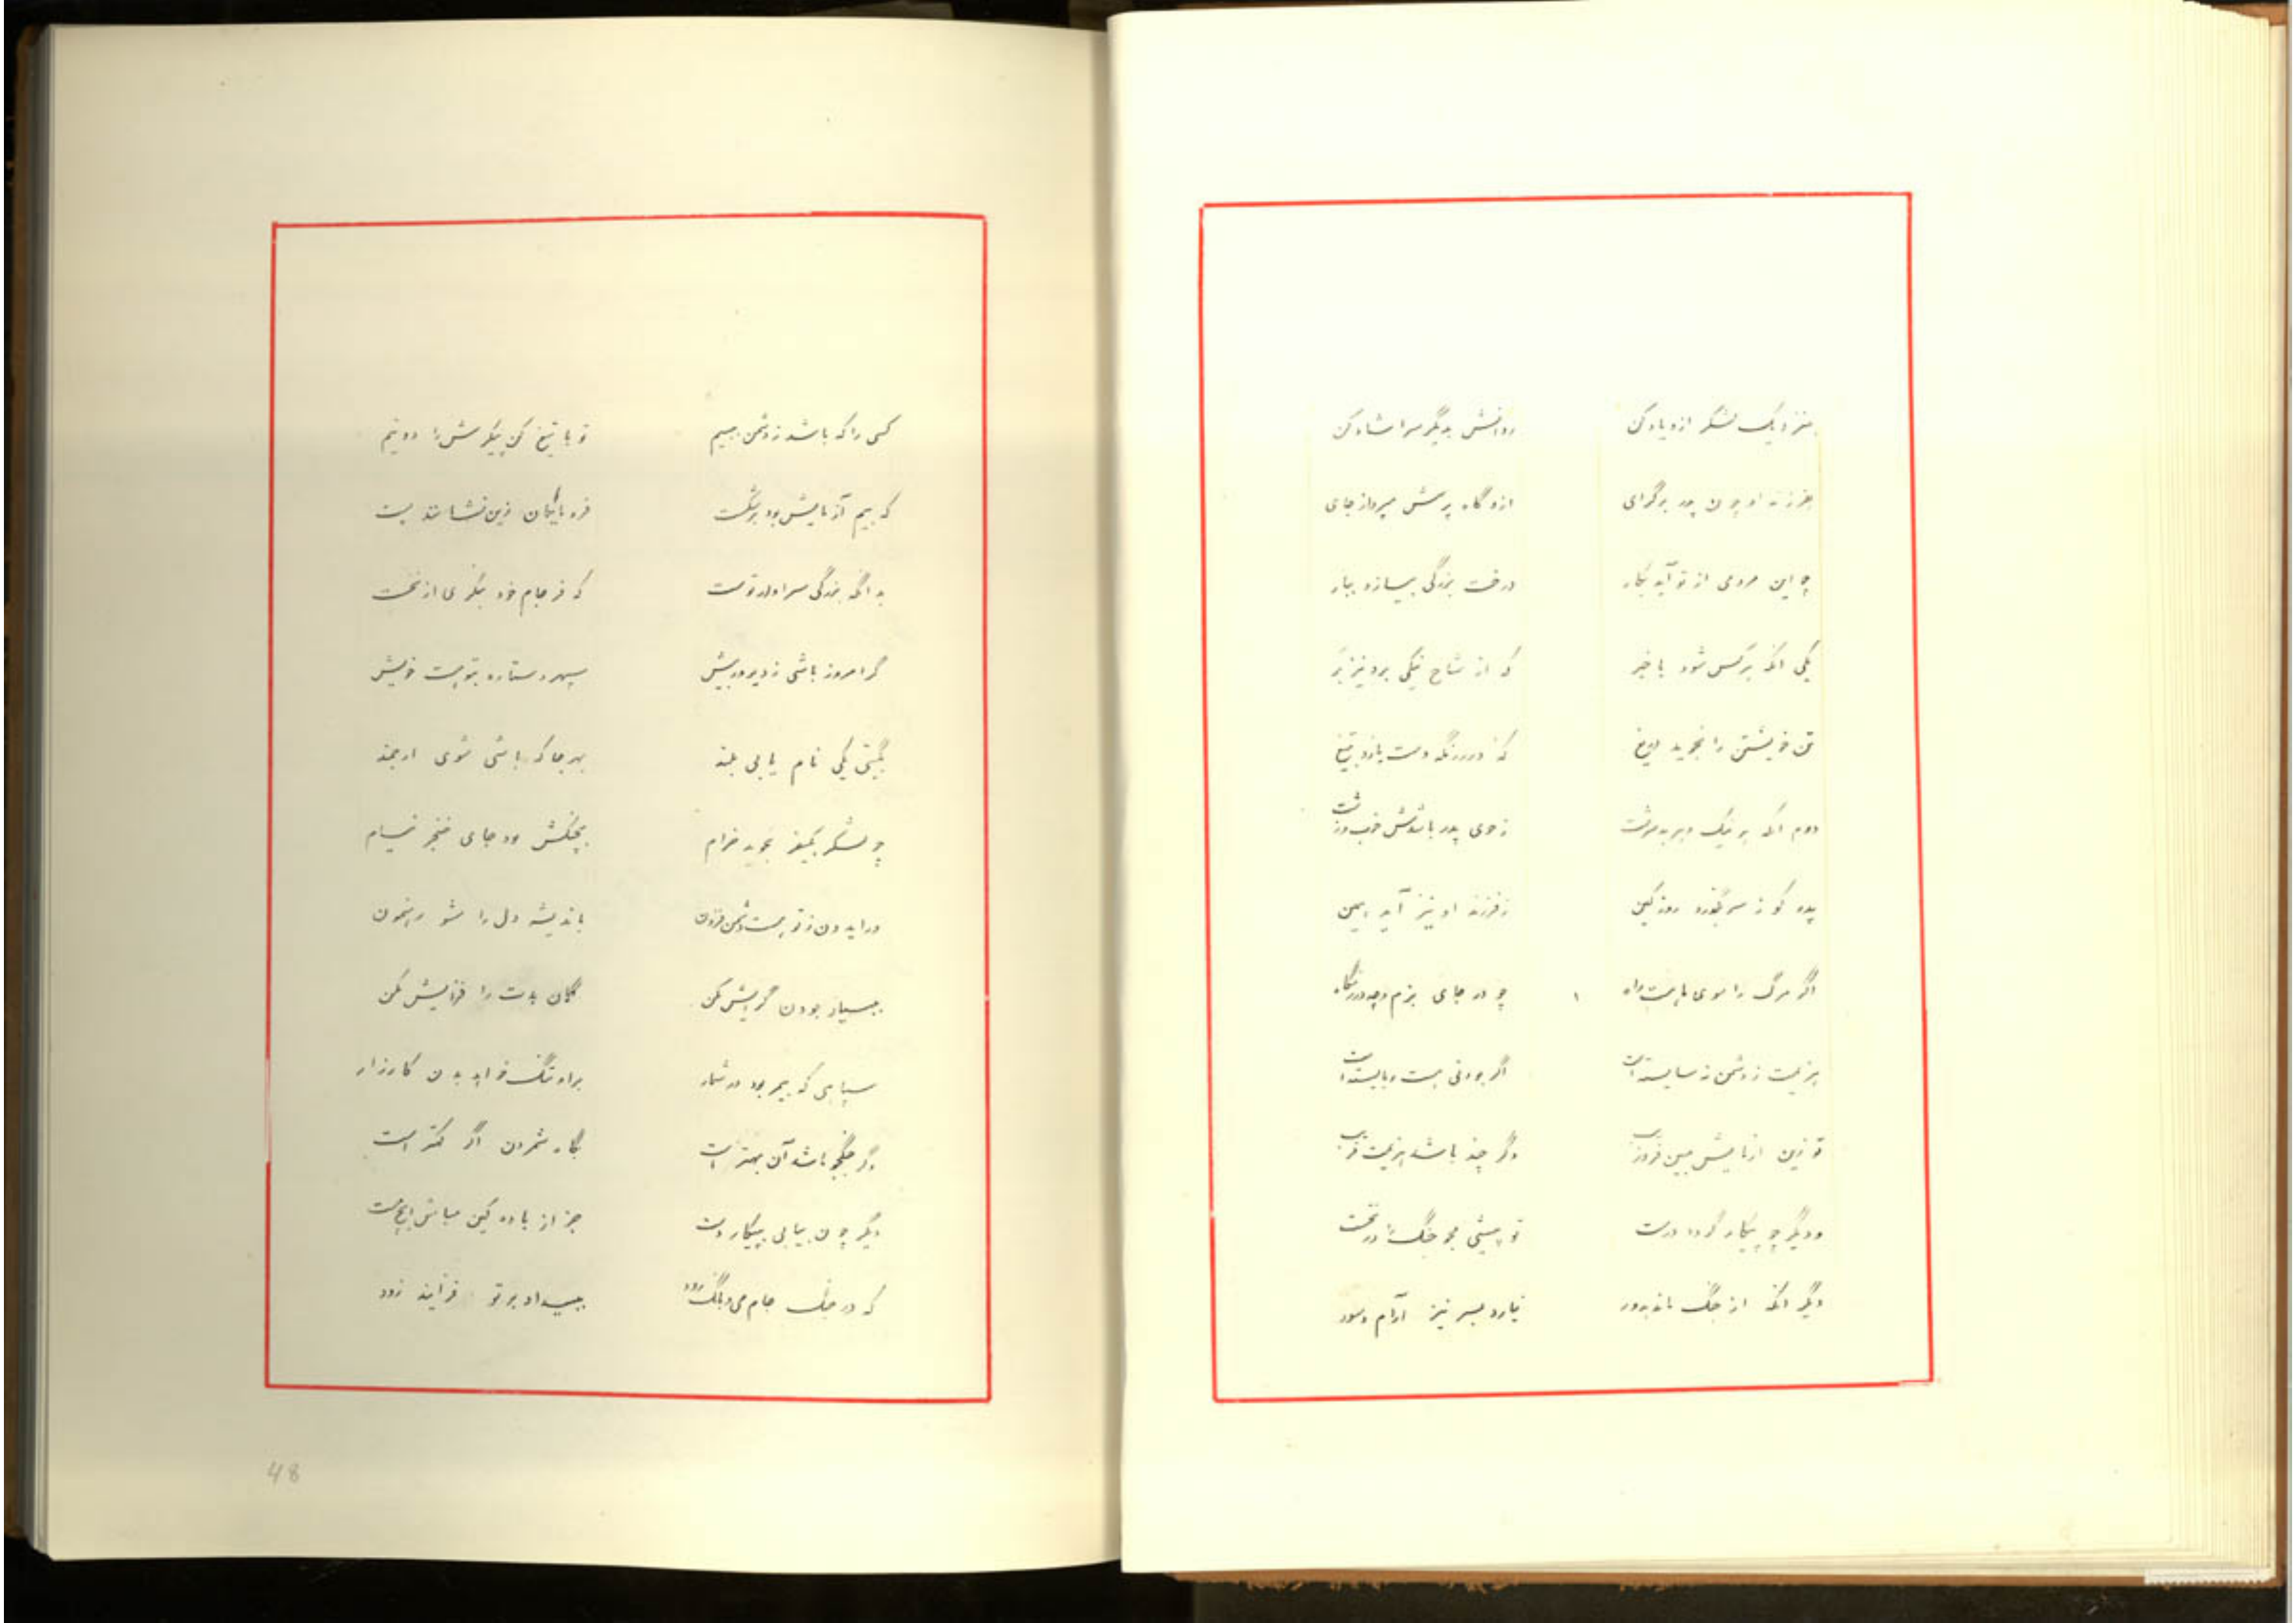 بنزدیک لشگر ازو یاد کن روانش بدیگر سرا شاد کن
بفرزند او چون پدر برگرای ازو گاه پرسش مپرداز جای
چو این مردمی از تو آید بکار درخت بزرگی بیسازد ببار
یکی انکه هرکس شود با خبر که از شاخ نیکی برد نیز بر
تن خویشتن را نجوید دریغ که در رزمگه دست یازد بتیغ
دوم انکه بر نیک و بر بد سرشت ز خوی پدر باشدش خوب و زشت
پدر کو ز سر بگذرد روز کین ز فرزند او نیز آید همین
اگر مرگ را سوی ما هست راه چو در جای بزم و چه در رزمگاه
هزیمت ز دشمن نه شایسته است اگر بودنی هست و بایسته است
تو زین ازمایش مبین فریب وگر چند باشد هزیمت قریب
ودیگر چو پیکار گردد درست تو پیشی مجو جنگ را در نخست
دیگر انکه از جنگ ماند بدور نیارد بسر نیز آرام و سور
کسی را که باشد ز دشمن ببیم تو با تیغ کن پیکرش را دو نیم
که بیم آزمایش بود بر شکست فرومایگان زین نشانند پست
بدانگه بزرگی سزاوار تست که فرجام خود بنگری از نخست
گر امروز باشی ز دیروز بیش سپهر و ستاره بتوست خویش
بگیتی یکی نام یابی بلند بهر جا که باشی شوی ارجمند
چو لشکر بکیفر بجوید خرام بچنگش بود جای خنجر نیام
ور ایدون ز تو هست دشمن فزون باندیشه دل را مشو رهنمون
ببسیار بودن گرایش مکن گمان بدت را فزایش مکن
سپاهی که بیمر بود در شمار براه تنگ خواهد بدن کارزار
وگر جنگجو باشد آن بهتر است بگاه شمردن اگر کمتر است
دیگر چون بیابی بپیکار دست جز از باده کین مباش ایچ مست
که در جنگ جام می و بانگ رود ببیداد بر تو فزایند زود
48